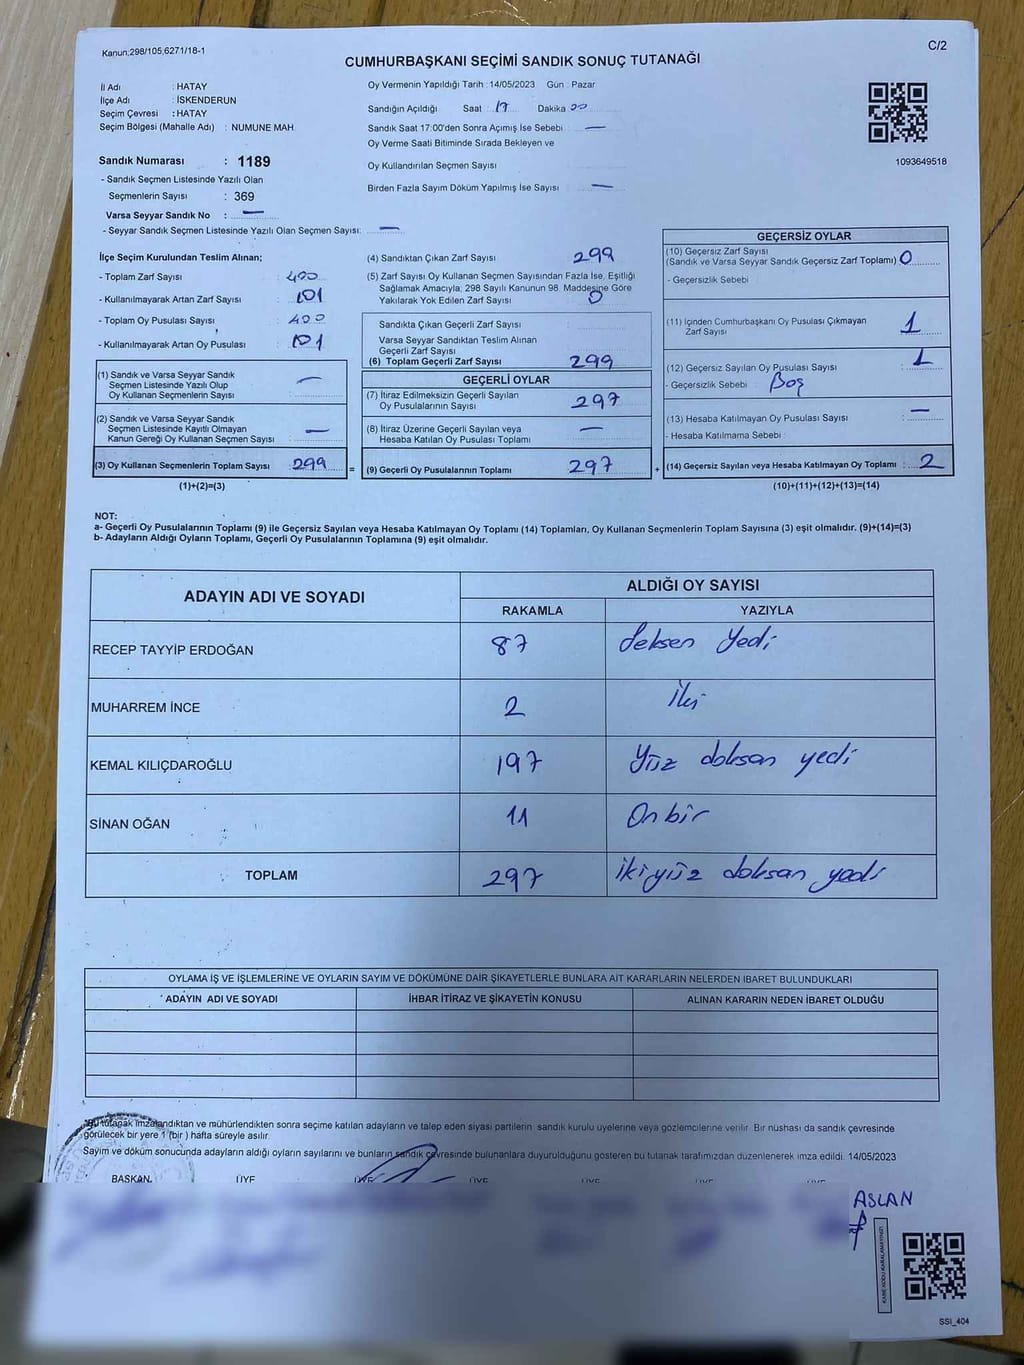 Kanun;298/105,6271/18-1
C/2
CUMHURBAŞKANI SEÇİMİ SANDIK SONUÇ TUTANAĞI
İl Adı : HATAY
İlçe Adı : İSKENDERUN
Seçim Çevresi : HATAY
Seçim Bölgesi (Mahalle Adı) : NUMUNE MAH
Sandık Numarası : 1189
- Sandık Seçmen Listesinde Yazılı Olan
Seçmenlerin Sayısı : 369
Varsa Seyyar Sandık No : —
- Seyyar Sandık Seçmen Listesinde Yazılı Olan Seçmen Sayısı: —
Oy Vermenin Yapıldığı Tarih : 14/05/2023 Gün : Pazar
Sandığın Açıldığı Saat : 17 Dakika 00
Sandık Saat 17:00'den Sonra Açımış İse Sebebi : —
Oy Verme Saati Bitiminde Sırada Bekleyen ve
Oy Kullandırılan Seçmen Sayısı
Birden Fazla Sayım Döküm Yapılmış İse Sayısı : —
1093649518
İlçe Seçim Kurulundan Teslim Alınan;
- Toplam Zarf Sayısı : 400
- Kullanılmayarak Artan Zarf Sayısı : 101
- Toplam Oy Pusulası Sayısı : 400
- Kullanılmayarak Artan Oy Pusulası : 101
(1) Sandık ve Varsa Seyyar Sandık
Seçmen Listesinde Yazılı Olup
Oy Kullanan Seçmenlerin Sayısı : —
(2) Sandık ve Varsa Seyyar Sandık
Seçmen Listesinde Kayıtlı Olmayan
Kanun Gereği Oy Kullanan Seçmen Sayısı : —
(3) Oy Kullanan Seçmenlerin Toplam Sayısı : 299 =
(1)+(2)=(3)
(4) Sandıktan Çıkan Zarf Sayısı : 299
(5) Zarf Sayısı Oy Kullanan Seçmen Sayısından Fazla İse, Eşitliği
Sağlamak Amacıyla; 298 Sayılı Kanunun 98. Maddesine Göre
Yakılarak Yok Edilen Zarf Sayısı : 0
Sandıkta Çıkan Geçerli Zarf Sayısı :
Varsa Seyyar Sandıktan Teslim Alınan
Geçerli Zarf Sayısı
(6) Toplam Geçerli Zarf Sayısı : 299
GEÇERLİ OYLAR
(7) İtiraz Edilmeksizin Geçerli Sayılan
Oy Pusulalarının Sayısı : 297
(8) İtiraz Üzerine Geçerli Sayılan veya
Hesaba Katılan Oy Pusulaları Toplamı : —
(9) Geçerli Oy Pusulalarının Toplamı : 297 +
GEÇERSİZ OYLAR
(10) Geçersiz Zarf Sayısı
(Sandık ve Varsa Seyyar Sandık Geçersiz Zarf Toplamı) : 0
- Geçersizlik Sebebi :
(11) İçinden Cumhurbaşkanı Oy Pusulası Çıkmayan
Zarf Sayısı : 1
(12) Geçersiz Sayılan Oy Pusulası Sayısı : 1
- Geçersizlik Sebebi : Boş
(13) Hesaba Katılmayan Oy Pusulası Sayısı : —
- Hesaba Katılmama Sebebi :
(14) Geçersiz Sayılan veya Hesaba Katılmayan Oy Toplamı : 2
(10)+(11)+(12)+(13)=(14)
NOT:
a- Geçerli Oy Pusulalarının Toplamı (9) ile Geçersiz Sayılan veya Hesaba Katılmayan Oy Toplamı (14) Toplamları, Oy Kullanan Seçmenlerin Toplam Sayısına (3) eşit olmalıdır. (9)+(14)=(3)
b- Adayların Aldığı Oyların Toplamı, Geçerli Oy Pusulalarının Toplamına (9) eşit olmalıdır.
ADAYIN ADI VE SOYADI
ALDIĞI OY SAYISI
RAKAMLA YAZIYLA
RECEP TAYYİP ERDOĞAN 87 Seksen Yedi
MUHARREM İNCE 2 İki
KEMAL KILIÇDAROĞLU 197 Yüz doksan yedi
SİNAN OĞAN 11 On bir
TOPLAM 297 İkiyüz doksan yedi
OYLAMA İŞ VE İŞLEMLERİNE VE OYLARIN SAYIM VE DÖKÜMÜNE DAİR ŞİKAYETLERLE BUNLARA AİT KARARLARIN NELERDEN İBARET BULUNDUKLARI
ADAYIN ADI VE SOYADI İHBAR İTİRAZ VE ŞİKAYETİN KONUSU ALINAN KARARIN NEDEN İBARET OLDUĞU
Bu tutanak imzalandıktan ve mühürlendikten sonra seçime katılan adayların ve talep eden siyasi partilerin sandık kurulu üyelerine veya gözlemcilerine verilir. Bir nüshası da sandık çevresinde
görülecek bir yere 1 (bir ) hafta süreyle asılır.
Sayım ve döküm sonucunda adayların aldığı oyların sayılarını ve bunların sandık çevresinde bulunanlara duyurulduğunu gösteren bu tutanak tarafımızdan düzenlenerek imza edildi. 14/05/2023
BAŞKAN ÜYE ÜYE ÜYE ÜYE ÜYE ÜYE
ASLAN
KARE KODU KARALAMAYINIZ!
SSİ_404